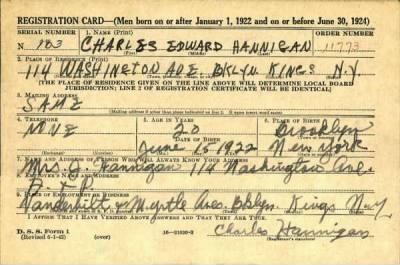 REGISTRATION CARD—(Men born on or after January 1, 1922 and on or before June 30, 1924)
SERIAL NUMBER 1. NAME (Print) ORDER NUMBER
N 183 CHARLES EDWARD HANNIGAN 11773
2. PLACE OF RESIDENCE (Print)
114 WASHINGTON AVE. BKLYN KINGS N.Y.
[THE PLACE OF RESIDENCE GIVEN ON THE LINE ABOVE WILL DETERMINE LOCAL BOARD
JURISDICTION; LINE 2 OF REGISTRATION CERTIFICATE WILL BE IDENTICAL]
3. MAILING ADDRESS
SAME
4. TELEPHONE 5. AGE IN YEARS 6. PLACE OF BIRTH
NONE 20 Brooklyn
DATE OF BIRTH
June 15 1922 New York
7. NAME AND ADDRESS OF PERSON WHO WILL ALWAYS KNOW YOUR ADDRESS
Mrs. J. Hannigan 114 Washington Ave.
8. EMPLOYER'S NAME AND ADDRESS
A. & P.
9. PLACE OF EMPLOYMENT OR BUSINESS
Vanderbilt & Myrtle Aves. Bklyn. Kings N.Y.
I AFFIRM THAT I HAVE VERIFIED ABOVE ANSWERS AND THAT THEY ARE TRUE.
D. S. S. Form 1
(Revised 6-1-42) 16—21630-2 Charles Hannigan
(Registrant's signature)